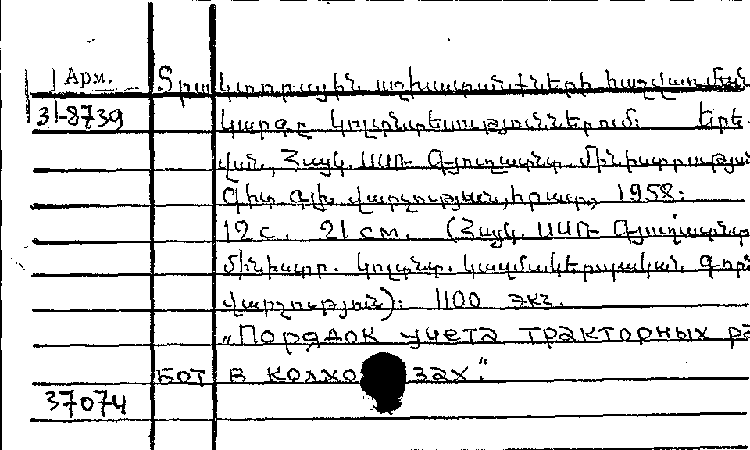 Арм.
31-8739
Տրակտորային աշխատանքների հաշվառման
կարգը կոլտնտեսություններում: Երե-
վան, Հայկ. ՍՍՌ Գյուղատնտ. մինիստրության
Գիտ. գլխ. վարչություն, հրատ., 1958:
12 с. 21 см. (Հայկ. ՍՍՌ Գյուղատնտ.
մինիստր. կոլտնտ. կազմակերպական գործ
վարչություն): 1100 экз.
„Порядок учета тракторных ра
бот в колхозах."
37074